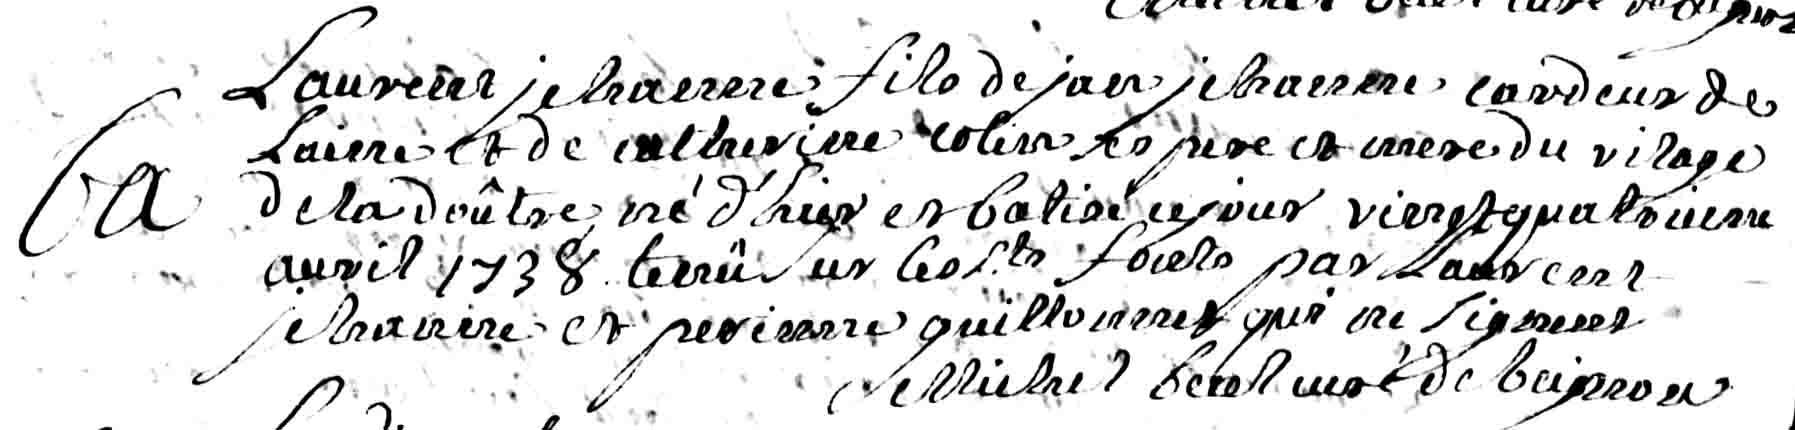 curé de beignon
Laurent jehanne fils de jan jehanne cardeur de
Ba
Laine et de catherine colin ses pere et mere du vilage
de la doûtre, né d'hier et batisé ce jour vingt quatrieme
auvril 1738 tenû sur les sts fonts par Laurent
jehanne et perinne guillonnet qui ne signent
Michel curé de beignon